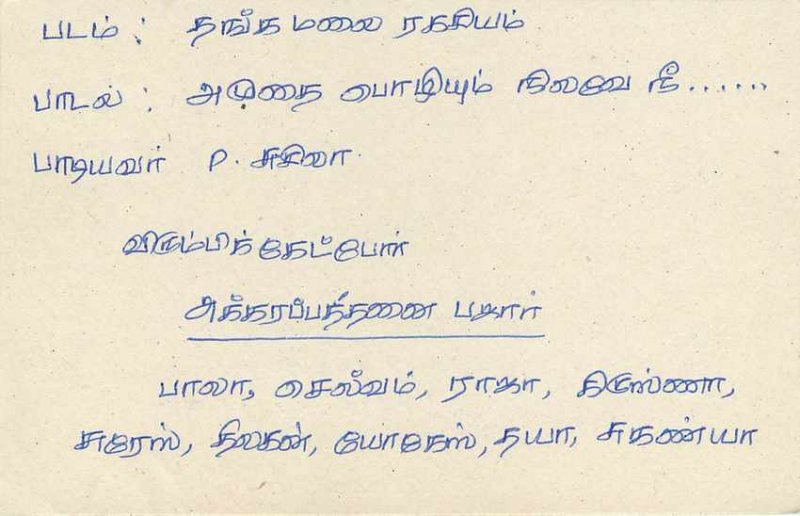 படம் : தங்க மலை ரகசியம்
பாடல் : அமுதை பொழியும் நிலவே நீ......
பாடியவர் P. சுசிலா
விரும்பிக் கேட்போர்
அக்கரப்பத்தனை பஜார்
பாலா, செல்வம், ராஜா, கிருஸ்ணா,
சுரேஸ், திலகன், யோகேஸ், தயா, சுகண்யா